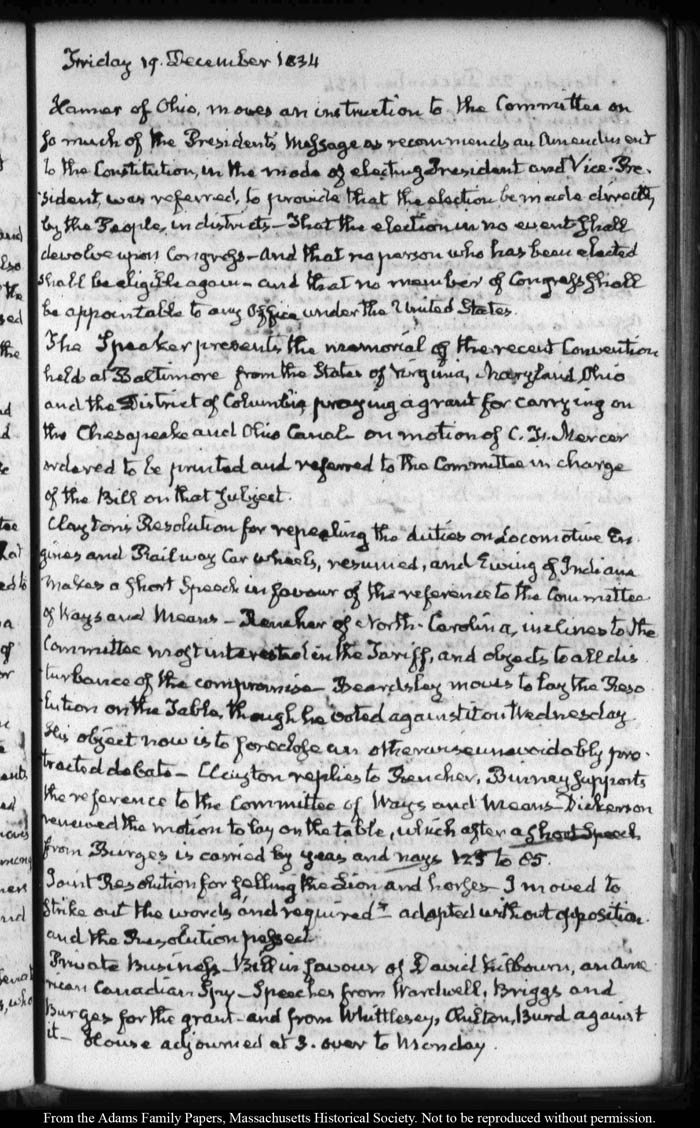 Friday 19. December 1834
Hamer of Ohio, moves an instruction to the Committee on
so much of the President's Message as recommends an Amendment
to the Constitution, in the mode of electing President and Vice-Pre-
sident, was referred, to provide that the election be made directly
by the People, in districts - That the election in no event shall
devolve upon Congress - And that no person who has been elected
shall be eligible again - and that no member of Congress shall
be appointable to any Office under the United States.
The Speaker presents the memorial of the recent Convention
held at Baltimore from the States of Virginia, Maryland, Ohio
and the District of Columbia, praying a grant for carrying on
the Chesapeake and Ohio Canal - on motion of C. F. Mercer
ordered to be printed and referred to the Committee in charge
of the Bill on that subject.
Clayton's Resolution for repealing the duties on Locomotive En-
gines and Railway Car wheels, resumed, and Ewing of Indiana
makes a short Speech in favour of the reference to the Committee
of Ways and Means - Rencher of North-Carolina, inclines to the
Committee most interested in the Tariff, and objects to all dis-
turbance of the compromise - Beardsley moves to lay the Reso-
lution on the Table, though he voted against it on Wednesday
His object now is to foreclose an otherwise unavoidably pro-
tracted debate - Clayton replies to Rencher, Binney supports
the reference to the Committee of Ways and Means - Dickerson
renewed the motion to lay on the table, which after a short Speech
from Burges is carried by yeas and nays 125 to 85.
Joint Resolution for selling the Lion and horses - I moved to
strike out the words "and required" - adopted without opposition
and the Resolution passed
Private Business - Bill in favour of David Kilbourn, an Ame-
rican Canadian Spy - Speeches from Wardwell, Briggs and
Burges for the grant - and from Whittlesey, Chilton, Burd against
it - House adjourned at 3. over to Monday.
From the Adams Family Papers, Massachusetts Historical Society. Not to be reproduced without permission.